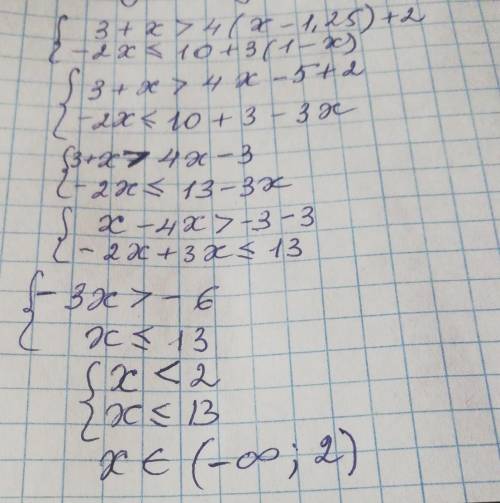 { 3 + x > 4(x - 1,25) + 2
{ -2x ≤ 10 + 3(1 - x)
{ 3 + x > 4x - 5 + 2
{ -2x ≤ 10 + 3 - 3x
{ 3 + x > 4x - 3
{ -2x ≤ 13 - 3x
{ x - 4x > -3 - 3
{ -2x + 3x ≤ 13
{ -3x > -6
{ x ≤ 13
{ x < 2
{ x ≤ 13
x ∈ (-∞; 2)